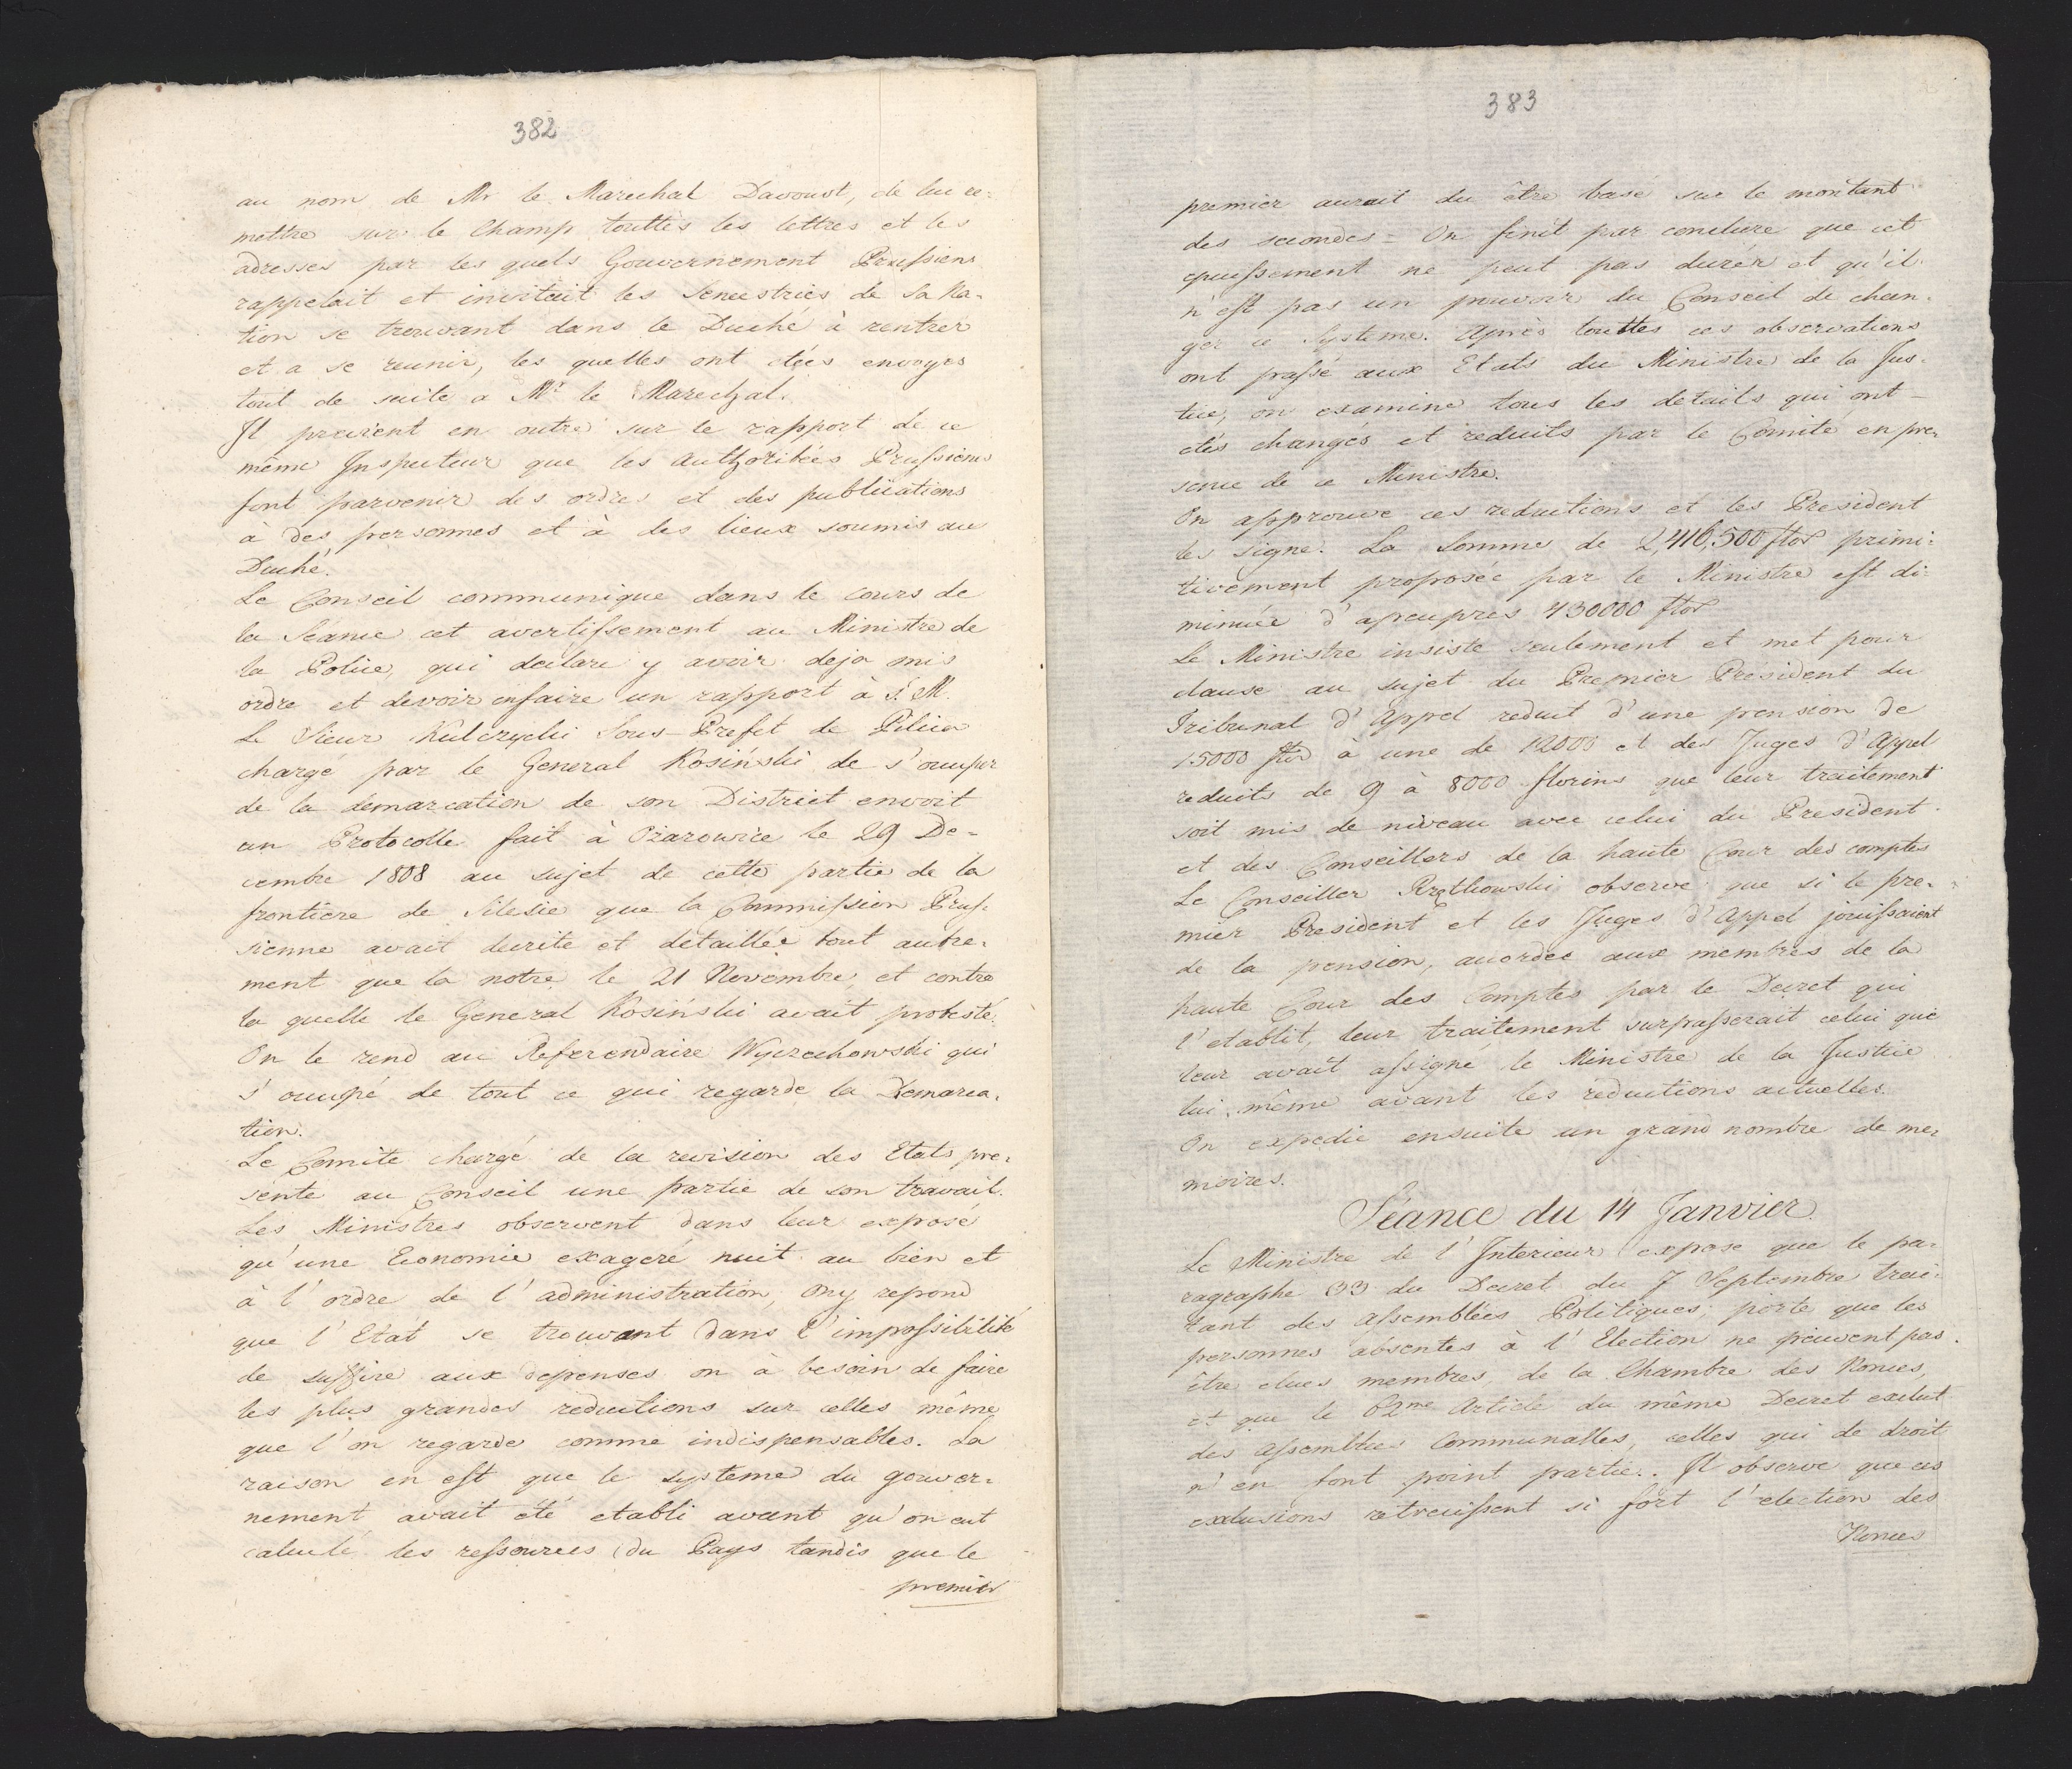 382
au nom de Mr le Marechal Davoust, de lui re=
mettre sur le Champ touttes les lettres et les
adresses par les quels Gouvernement Prussiens
rappelait et invitait les Semestriés de sa Na-
tion se trouvant dans le Duché à rentrer
et a se reunir, les quelles ont etées envoyes
tout de suite a Mr le Marechal.
Il previent en outre sur le rapport de ce
même Inspecteur que les Authoritées Prussiens
font parvenir des ordres et des publications
à des personnes et à des lieux soumis au
Duché.
Le Conseil communique dans le cours de
la Séance cet avertissement au Ministre de
la Police, qui declare y avoir deja mis
ordre et devoir enfaire un rapport à S. M.
Le Sieur Kulczycki Sous-Prefet de Pilica
chargé par le General Kosiński de s'occuper
de la demarcation de son District envoit
un Protocolle fait à Ożarowice le 29 De-
cembre 1808 au sujet de cette partie de la
frontiere de Silesie que la Commission Prus-
sienne avait decrite et détaillée tout autre-
ment que la notre le 21 Novembre, et contre
la quelle le General Kosiński avait protesté.
On le rend au Referendaire Wyczechowski qui
s'occupé de tout ce qui regarde la Demarca-
tion.
Le Comite chargé de la revision des Etats pre-
sente au Conseil une partie de son travail.
Les Ministres observent dans leur exposé
qu'une Economie exageré nuit au bien et
à l'ordre de l'administration, ony repond
que l'Etat se trouvant dans l'impossibilité
de suffire aux depenses on à besoin de faire
les plus grandes reductions sur celles même
que l'on regarde comme indispensables. La
raison en est que le systeme du gouver=
nement avait été etabli avant qu'on eut
calculé les ressources du Pays tandis que le
premier
383
premier aurait du être basé sur le montant
des secondes = On finit par conclure que cet
epuissement ne peut pas durér et qu'il
n'est pas un pouvoir du Conseil de chan-
ger ce Systeme. Après touttes ces observations
ont passé aux Etats du Ministre de la Jus-
tice, on examine tous les details qui ont-
étés changés et reduits par le Comité en pre-
sence de ce Ministre.
On approuve ces reductions et les President
les signe. La Somme de 2,416,500 flor primi=
tivement proposée par le Ministre est di-
minuée d'apeupres 430000 flor
Le Ministre insiste seulement et met pour
clause au sujet du Premier Président du
Tribunal d'Appel reduit d'une pension de
15000 flor à une de 12000 et des Juges d'Appel
reduits de 9 à 8000 florins que leur traitement
soit mis de niveau avec celui du President
et des Conseillers de la haute Cour des comptes
Le Conseiller observe que si le pre-
mier President et les Juges d'Appel jouissaient
de la pension, accordée aux membres de la
haute Cour des Comptes par le Decret qui
l'etablit, leur traitement surpasserait celui que
leur avait assigné le Ministre de la Justice
lui-même avant les réductions actuelles.
On expedie ensuite un grand nombre de me-
moires.
Séance du 14 Janvier.
Le Ministre de l'Interieur expose que le pa-
ragraphe 33 du Decret du 7 Septembre trai-
tant des Assemblées Politiques, porte que les
personnes absentes à l'Election ne peuvent pas
être elues membres de la Chambre des Nonces,
et que le 62me Article du même Decret exclut
des Assemblées Communalles, celles qui de droit
n'en font point partie. Il observe que ces
exclusions retrecissent si fort l'election des
Nonces